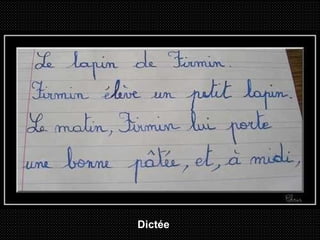 Le lapin de Firmin.
Firmin élève un petit lapin.
Le matin, Firmin lui porte
une bonne pâtée, et, à midi,
Dictée